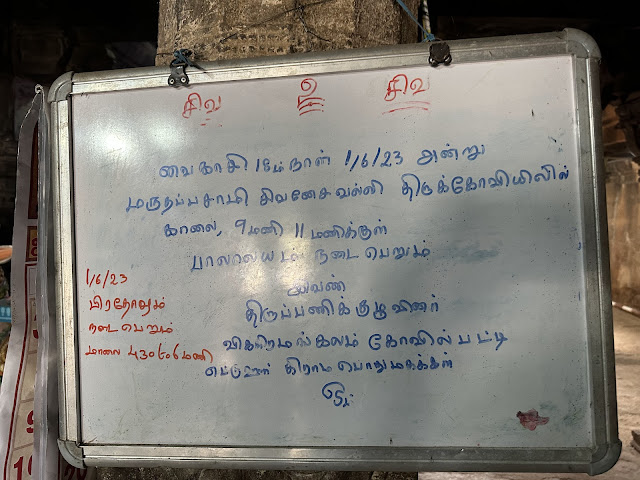 சிவ உ சிவ
வைகாசி 18ம் நாள் 1/6/23 அன்று
மருதப்பசாமி சிவனேசவல்லி திருக்கோவிலில்
காலை, 9மணி 11 மணிக்குள்
பாலாலயம் நடைபெறும்
இவண்
திருப்பணிக்குழுவினர்
விகிரமங்கலம் கோவில்பட்டி
கிராம பொதுமக்கள்
ஓம்
1/6/23
பிரதோஷம்
நடைபெறும்
மாலை 430 to 6 மணி